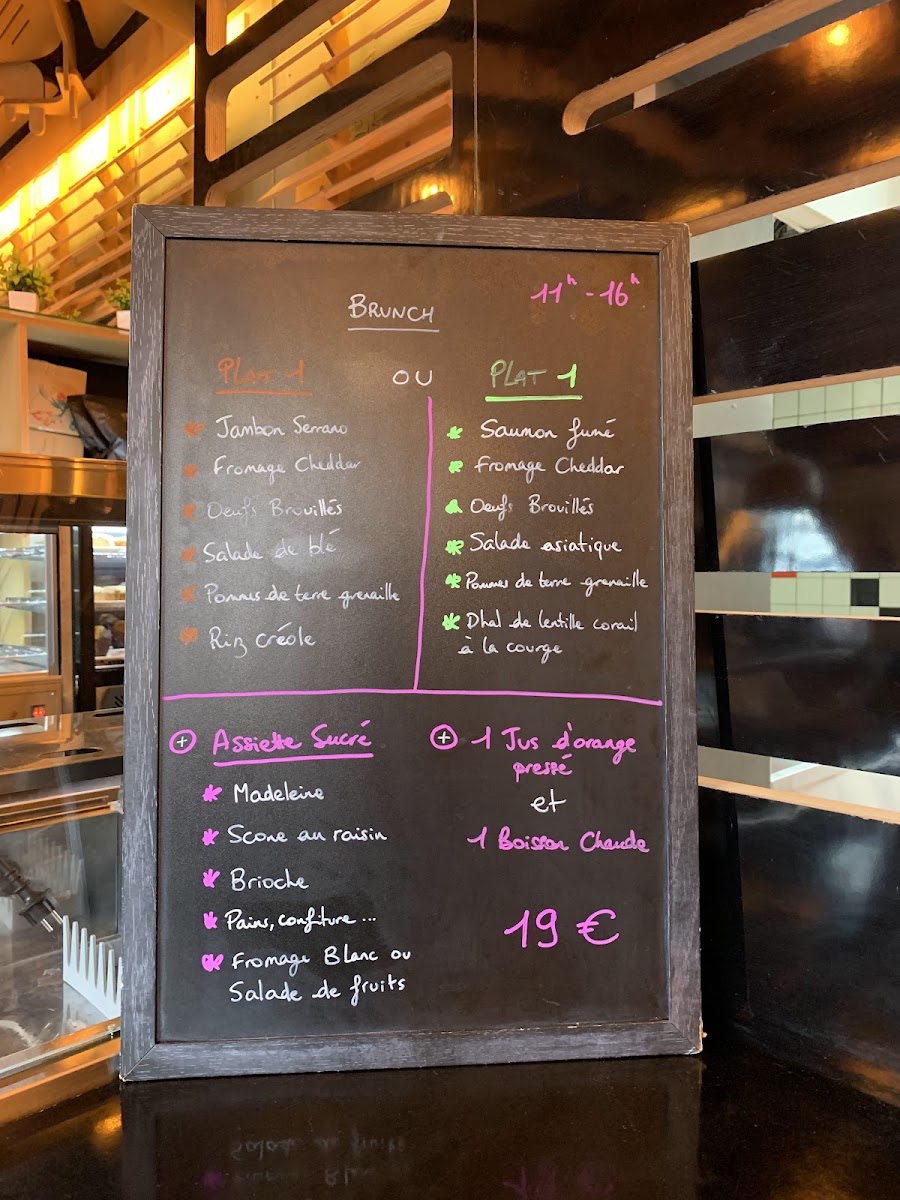 BRUNCH
11h - 16h
PLAT 1
OU
PLAT 1
Jambon Serrano
Fromage Cheddar
Oeufs Brouillés
Salade de blé
Pommes de terre grenaille
Riz créole
Saumon fumé
Fromage Cheddar
Oeufs Brouillés
Salade asiatique
Pommes de terre grenaille
Dhal de lentille corail
à la courge
+ Assiette Sucré
Madeleine
Scone au raisin
Brioche
Pains, confiture...
Fromage Blanc ou
Salade de fruits
+ 1 Jus d'orange
pressé
et
1 Boisson Chaude
19 €